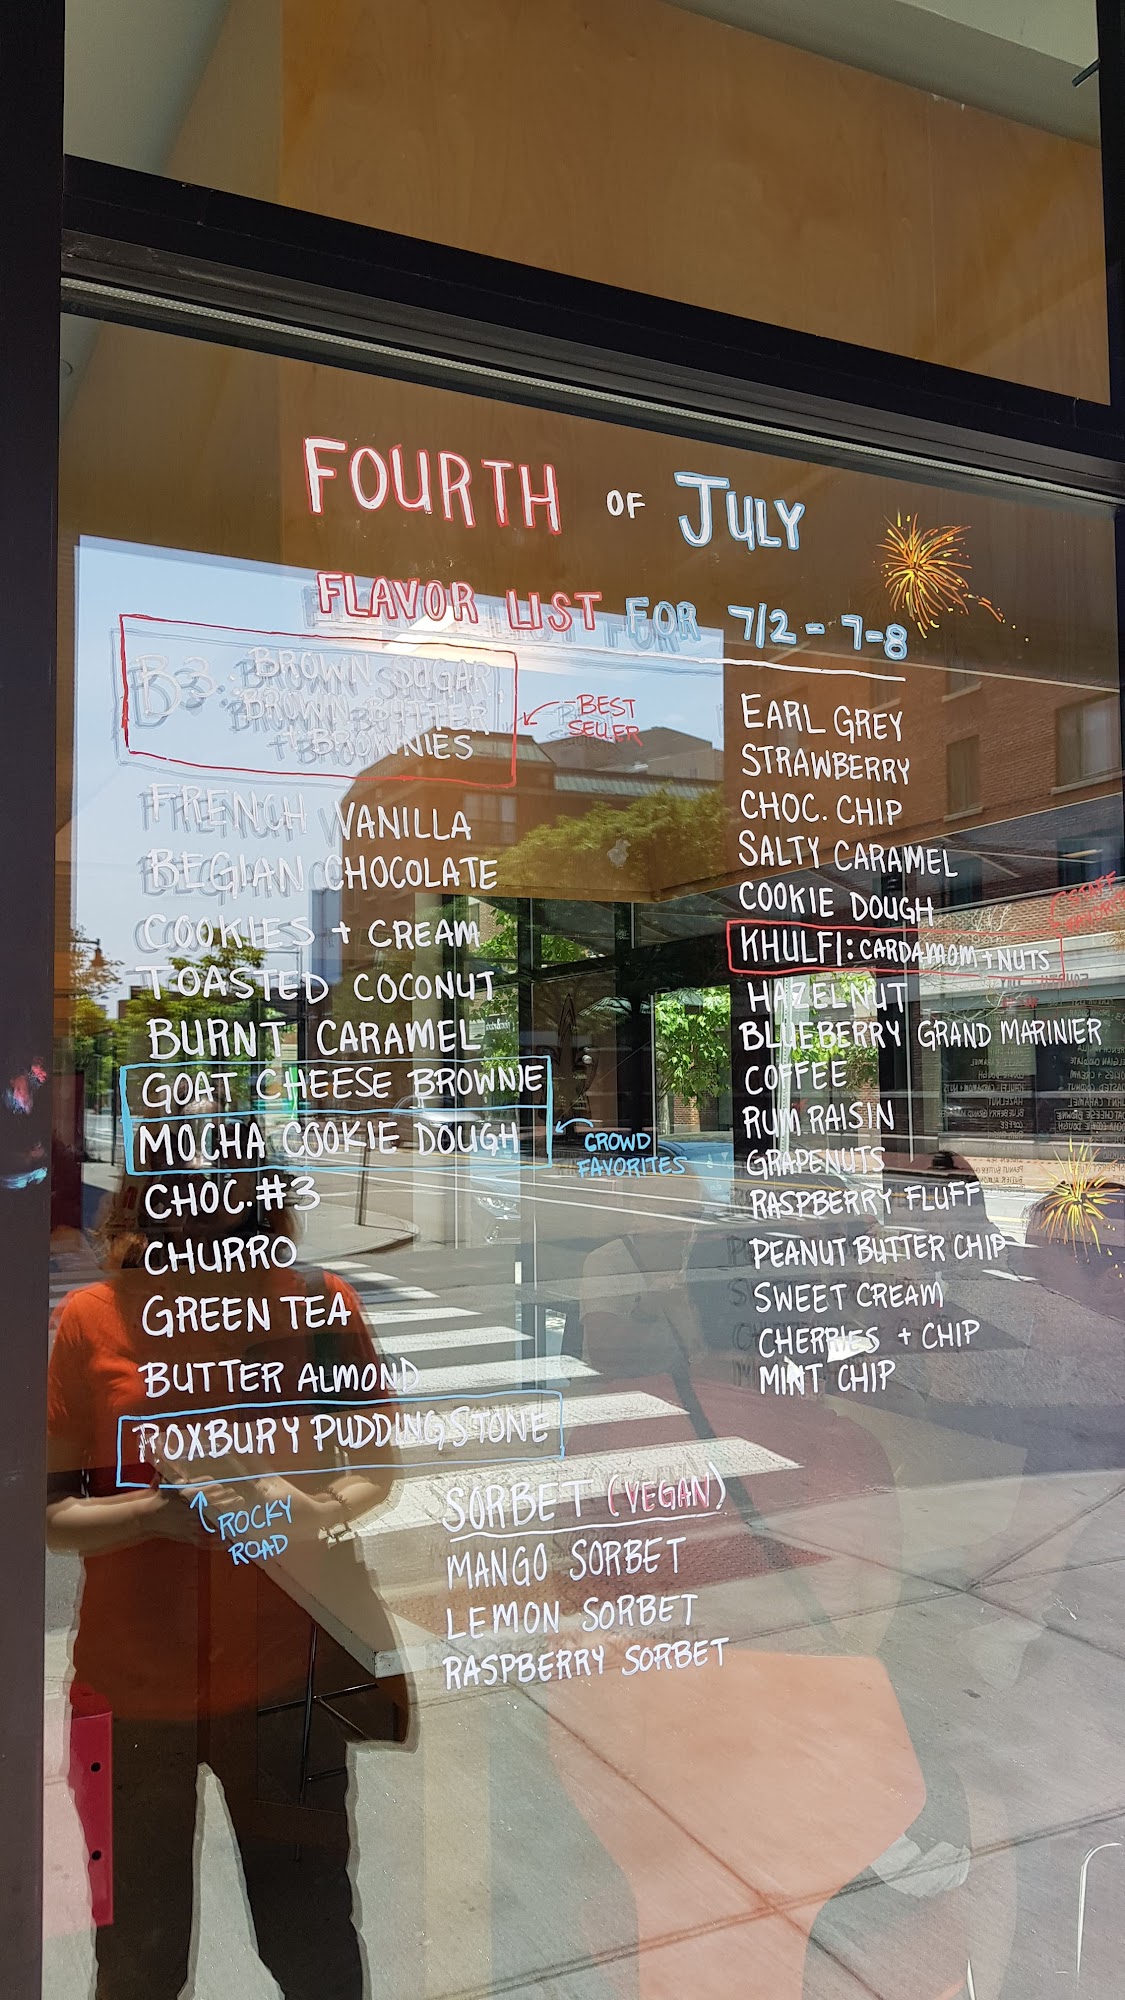 FOURTH OF JULY
FLAVOR LIST FOR 7/2 - 7-8
B3: BROWN SUGAR,
BROWN BUTTER
+ BROWNIES
BEST
SELLER
FRENCH VANILLA
BEGIAN CHOCOLATE
COOKIES + CREAM
TOASTED COCONUT
BURNT CARAMEL
GOAT CHEESE BROWNIE
MOCHA COOKIE DOUGH
CROWD
FAVORITES
CHOC. #3
CHURRO
GREEN TEA
BUTTER ALMOND
ROXBURY PUDDING STONE
ROCKY
ROAD
EARL GREY
STRAWBERRY
CHOC. CHIP
SALTY CARAMEL
COOKIE DOUGH
STAFF
KHULFI: CARDAMOM + NUTS
HAZELNUT
BLUEBERRY GRAND MARINIER
COFFEE
RUM RAISIN
GRAPENUTS
RASPBERRY FLUFF
PEANUT BUTTER CHIP
SWEET CREAM
CHERRIES + CHIP
MINT CHIP
SORBET (VEGAN)
MANGO SORBET
LEMON SORBET
RASPBERRY SORBET